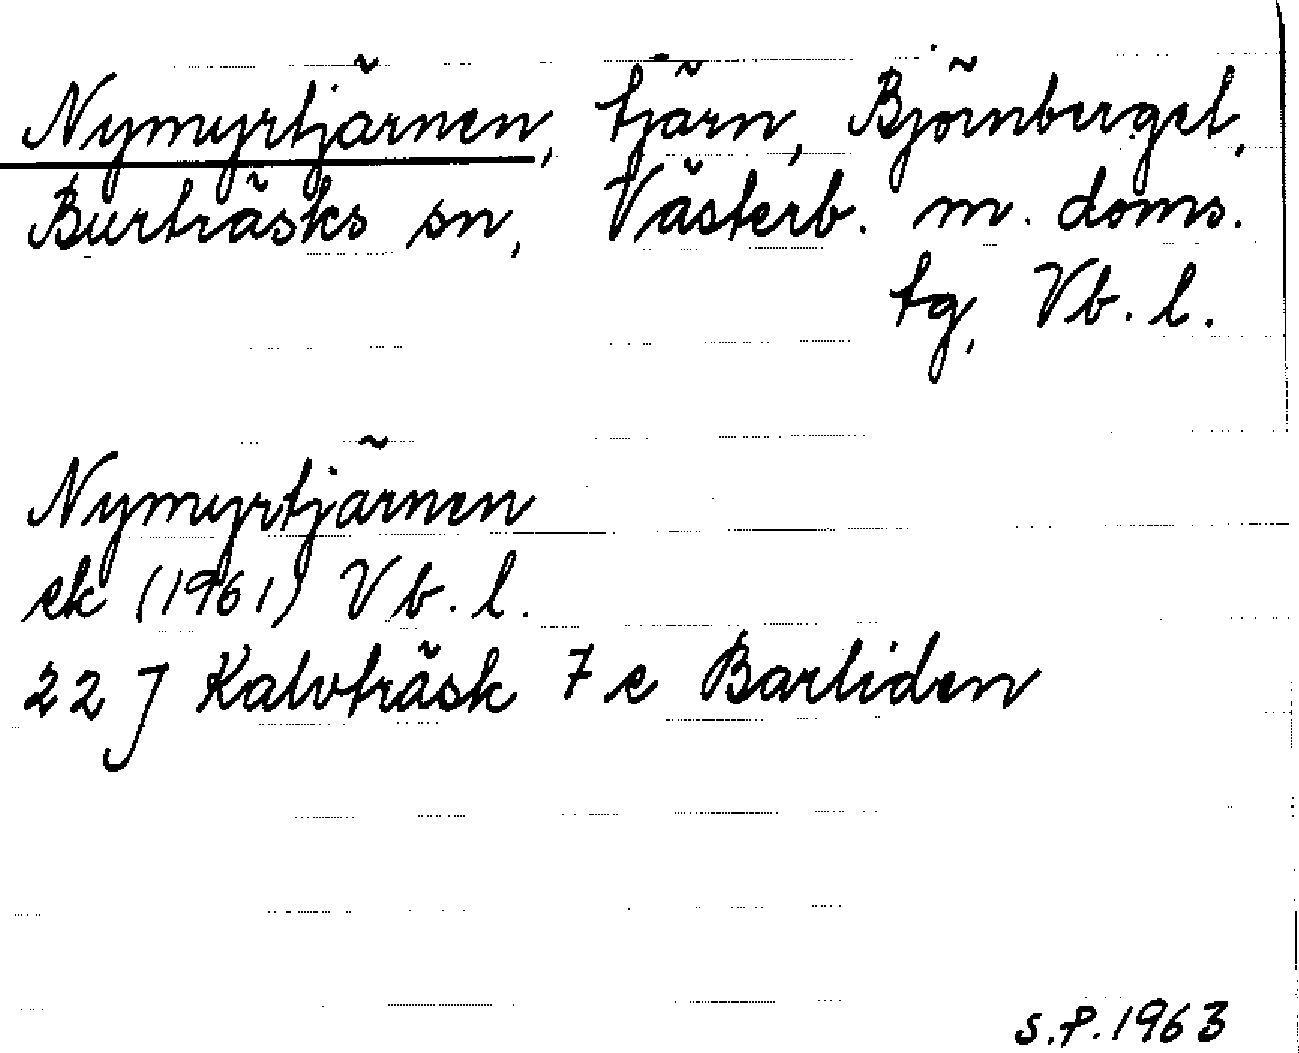 Nymyrtjärnen, tjärn, Björnberget,
Burträsks sn, Västerb. m. doms.
tg, Vb. l.
Nymyrtjärnen
ek (1961) Vb. l.
22 J Kalvträsk 7 e Barliden
S.P. 1963